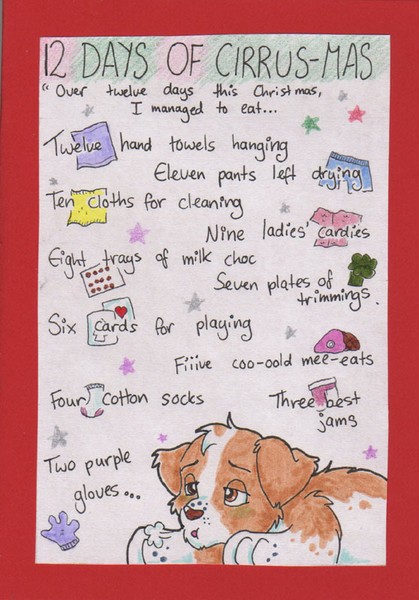 12 DAYS OF CIRRUS-MAS
"Over twelve days this Christmas,
I managed to eat...
Twelve hand towels hanging
Eleven pants left drying
Ten cloths for cleaning
Nine ladies' cardies
Eight trays of milk choc
Seven plates of
trimmings.
Six cards for playing
Fiiive coo-oold mee-eats
Four cotton socks
Three best
jams
Two purple
gloves...